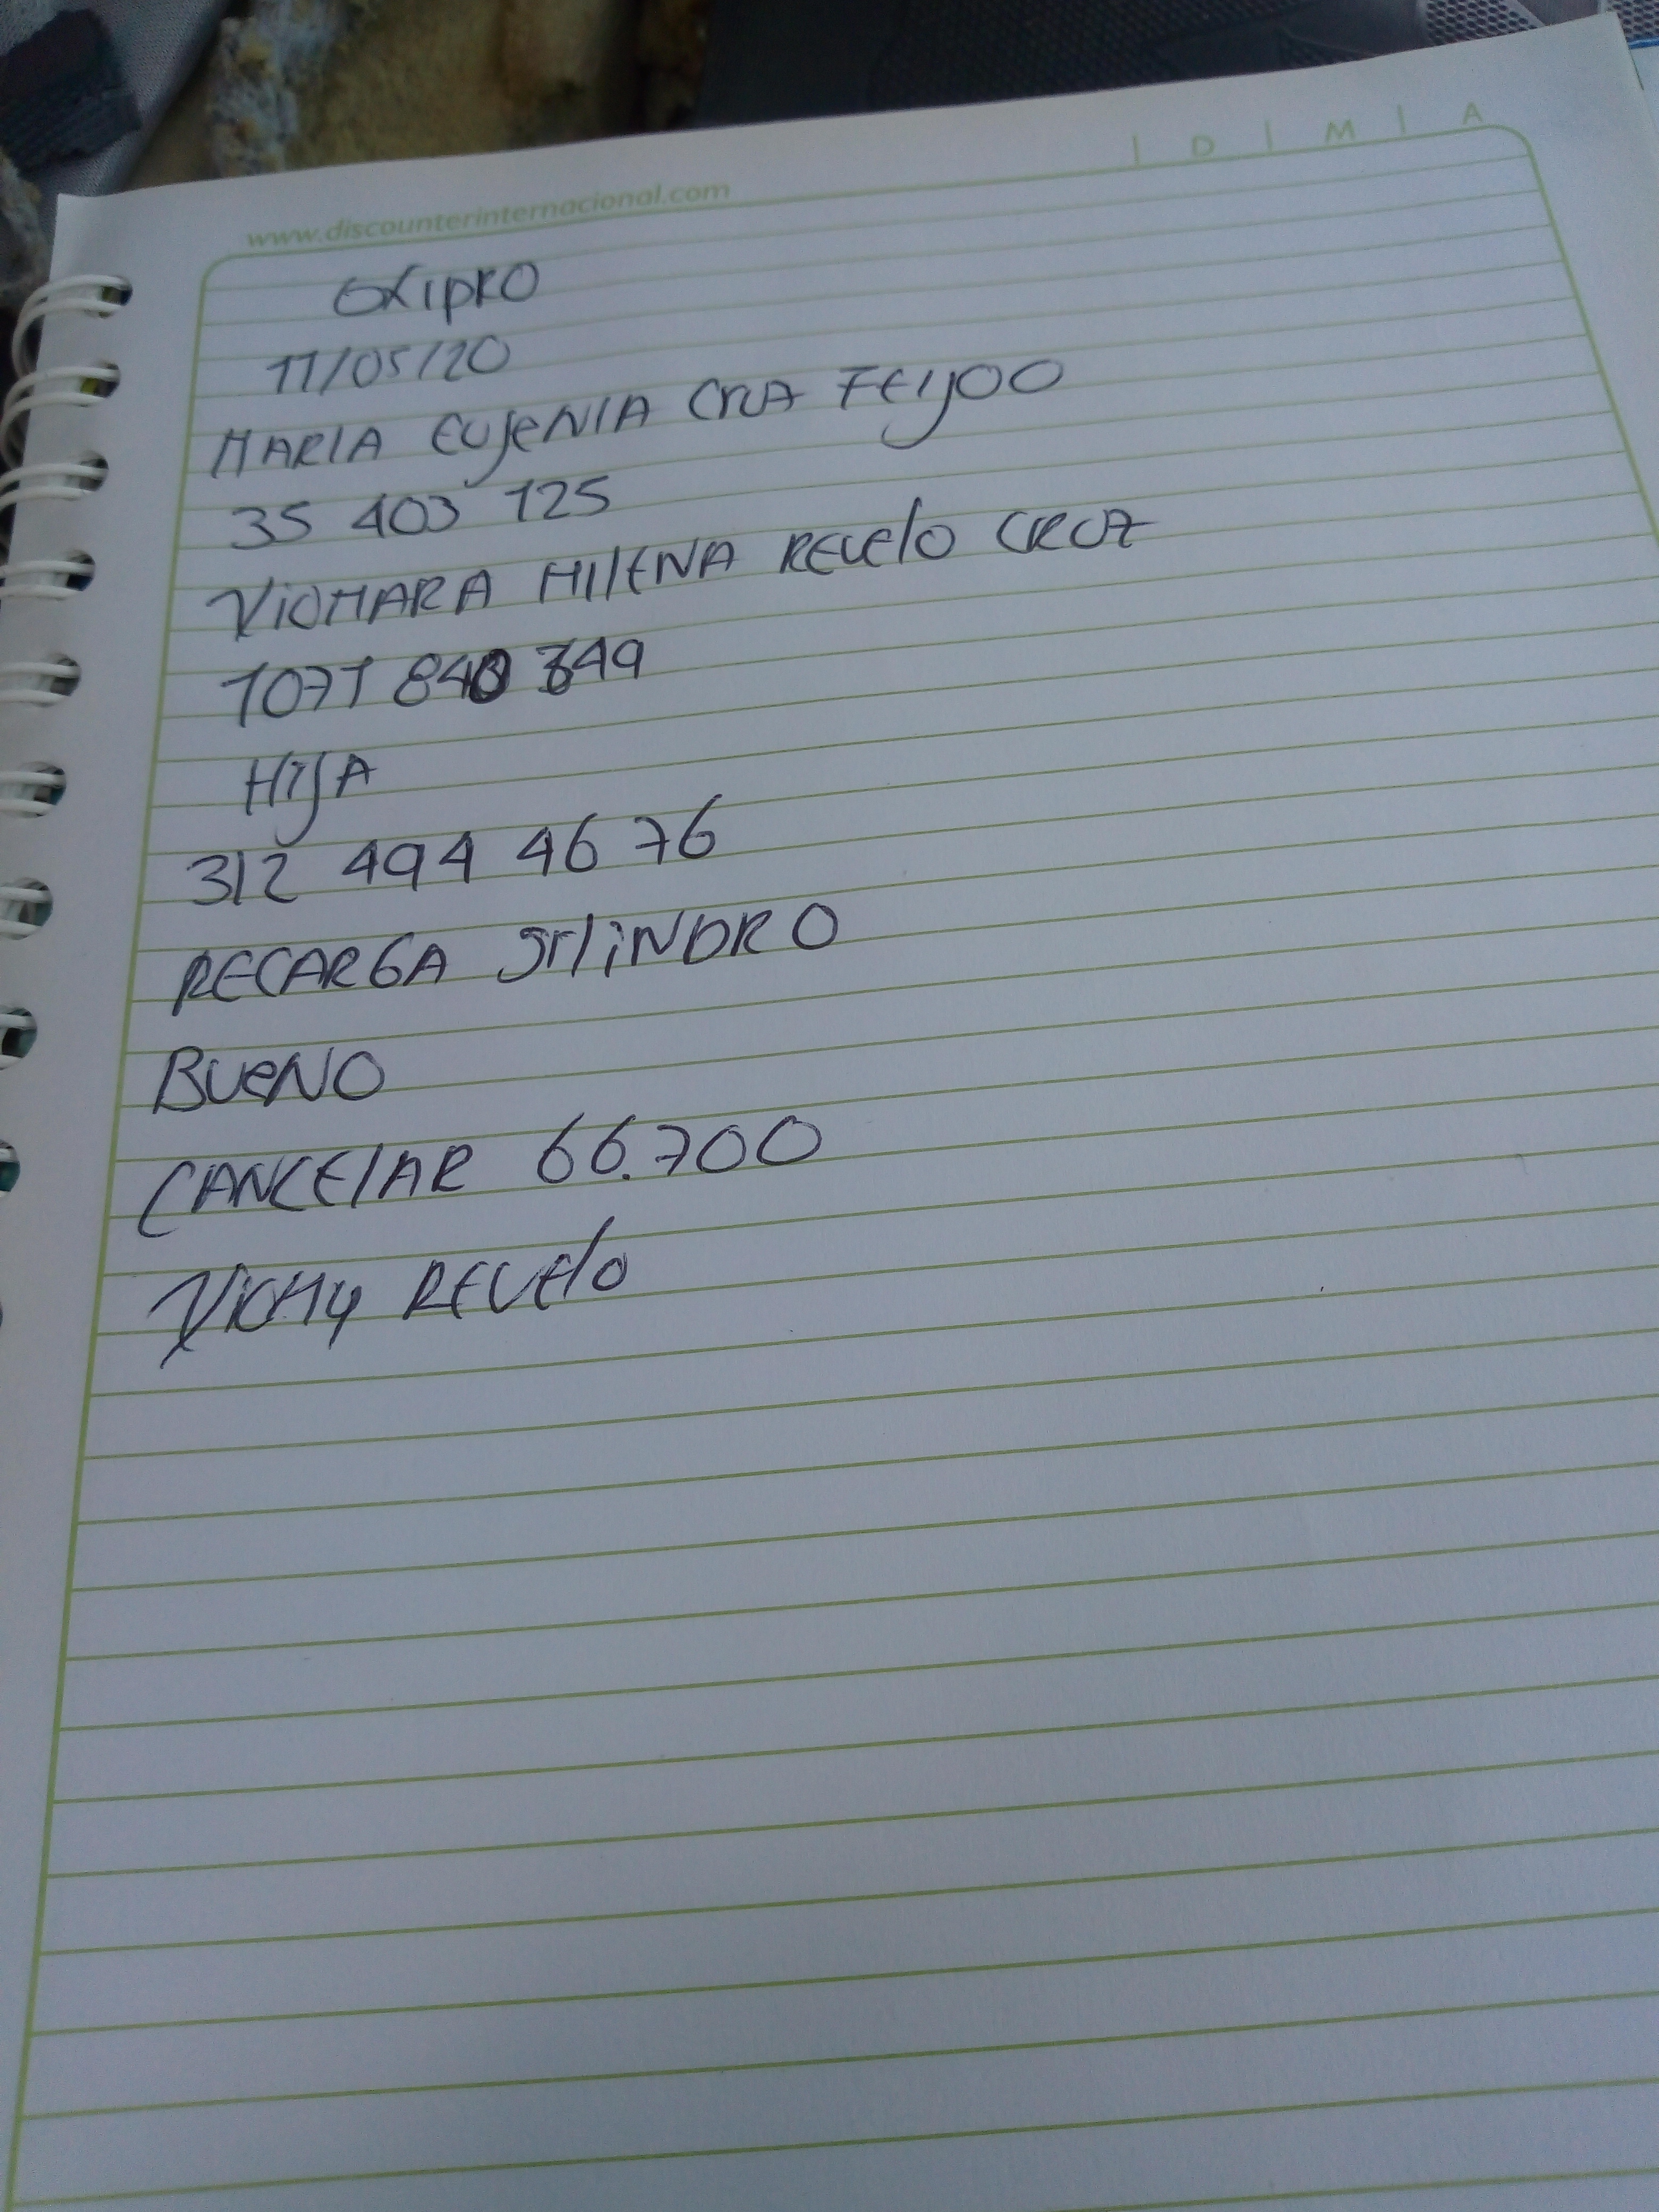 | D | M | A
www.discounterinternacional.com
OXIPRO
11/05/20
MARIA EUGENIA CRUZ FEIJOO
35 403 125
XIOMARA MILENA REVELO CRUZ
1071 840 349
HIJA
312 494 46 76
RECARGA SILINDRO
BUENO
CANCELAR 66.700
XIOMY REVELO